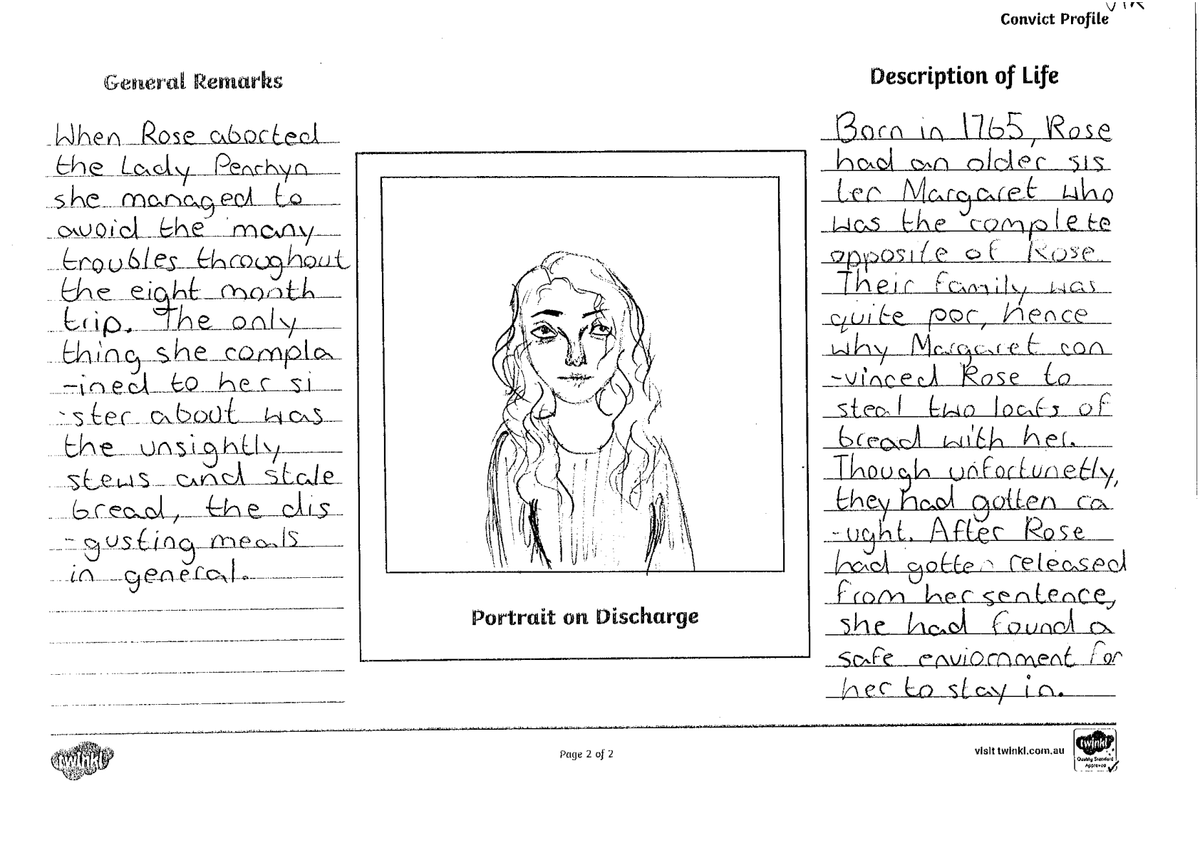 Convict Profile
General Remarks
When Rose aborted
the Lady Penrhyn
she managed to
avoid the many
troubles throughout
the eight month
trip. The only
thing she compla
-ined to her si
-ster about was
the unsightly
stews and stale
bread, the dis
-gusting meals
in general.
Portrait on Discharge
Description of Life
Born in 1765, Rose
had an older sis
ter Margaret who
was the complete
opposite of Rose.
Their family was
quite por, hence
why Margaret con
-vinced Rose to
steal two loafs of
bread with her.
Though unfortunetly,
they had gotten ca
-ught. After Rose
had gotten released
from her sentence,
she had found a
safe enviornment for
her to stay in.
twinkl
Page 2 of 2
visit twinkl.com.au
twinkl
Quality Standard
Approved